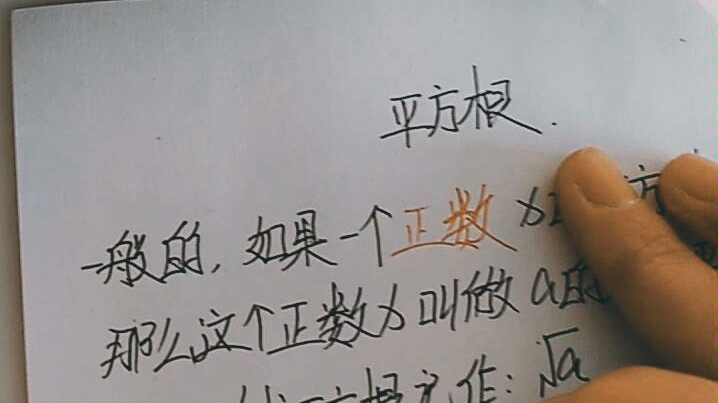 平方根.
一般的,如果一个正数x
那么这个正数x叫做a的
方根记作:√a